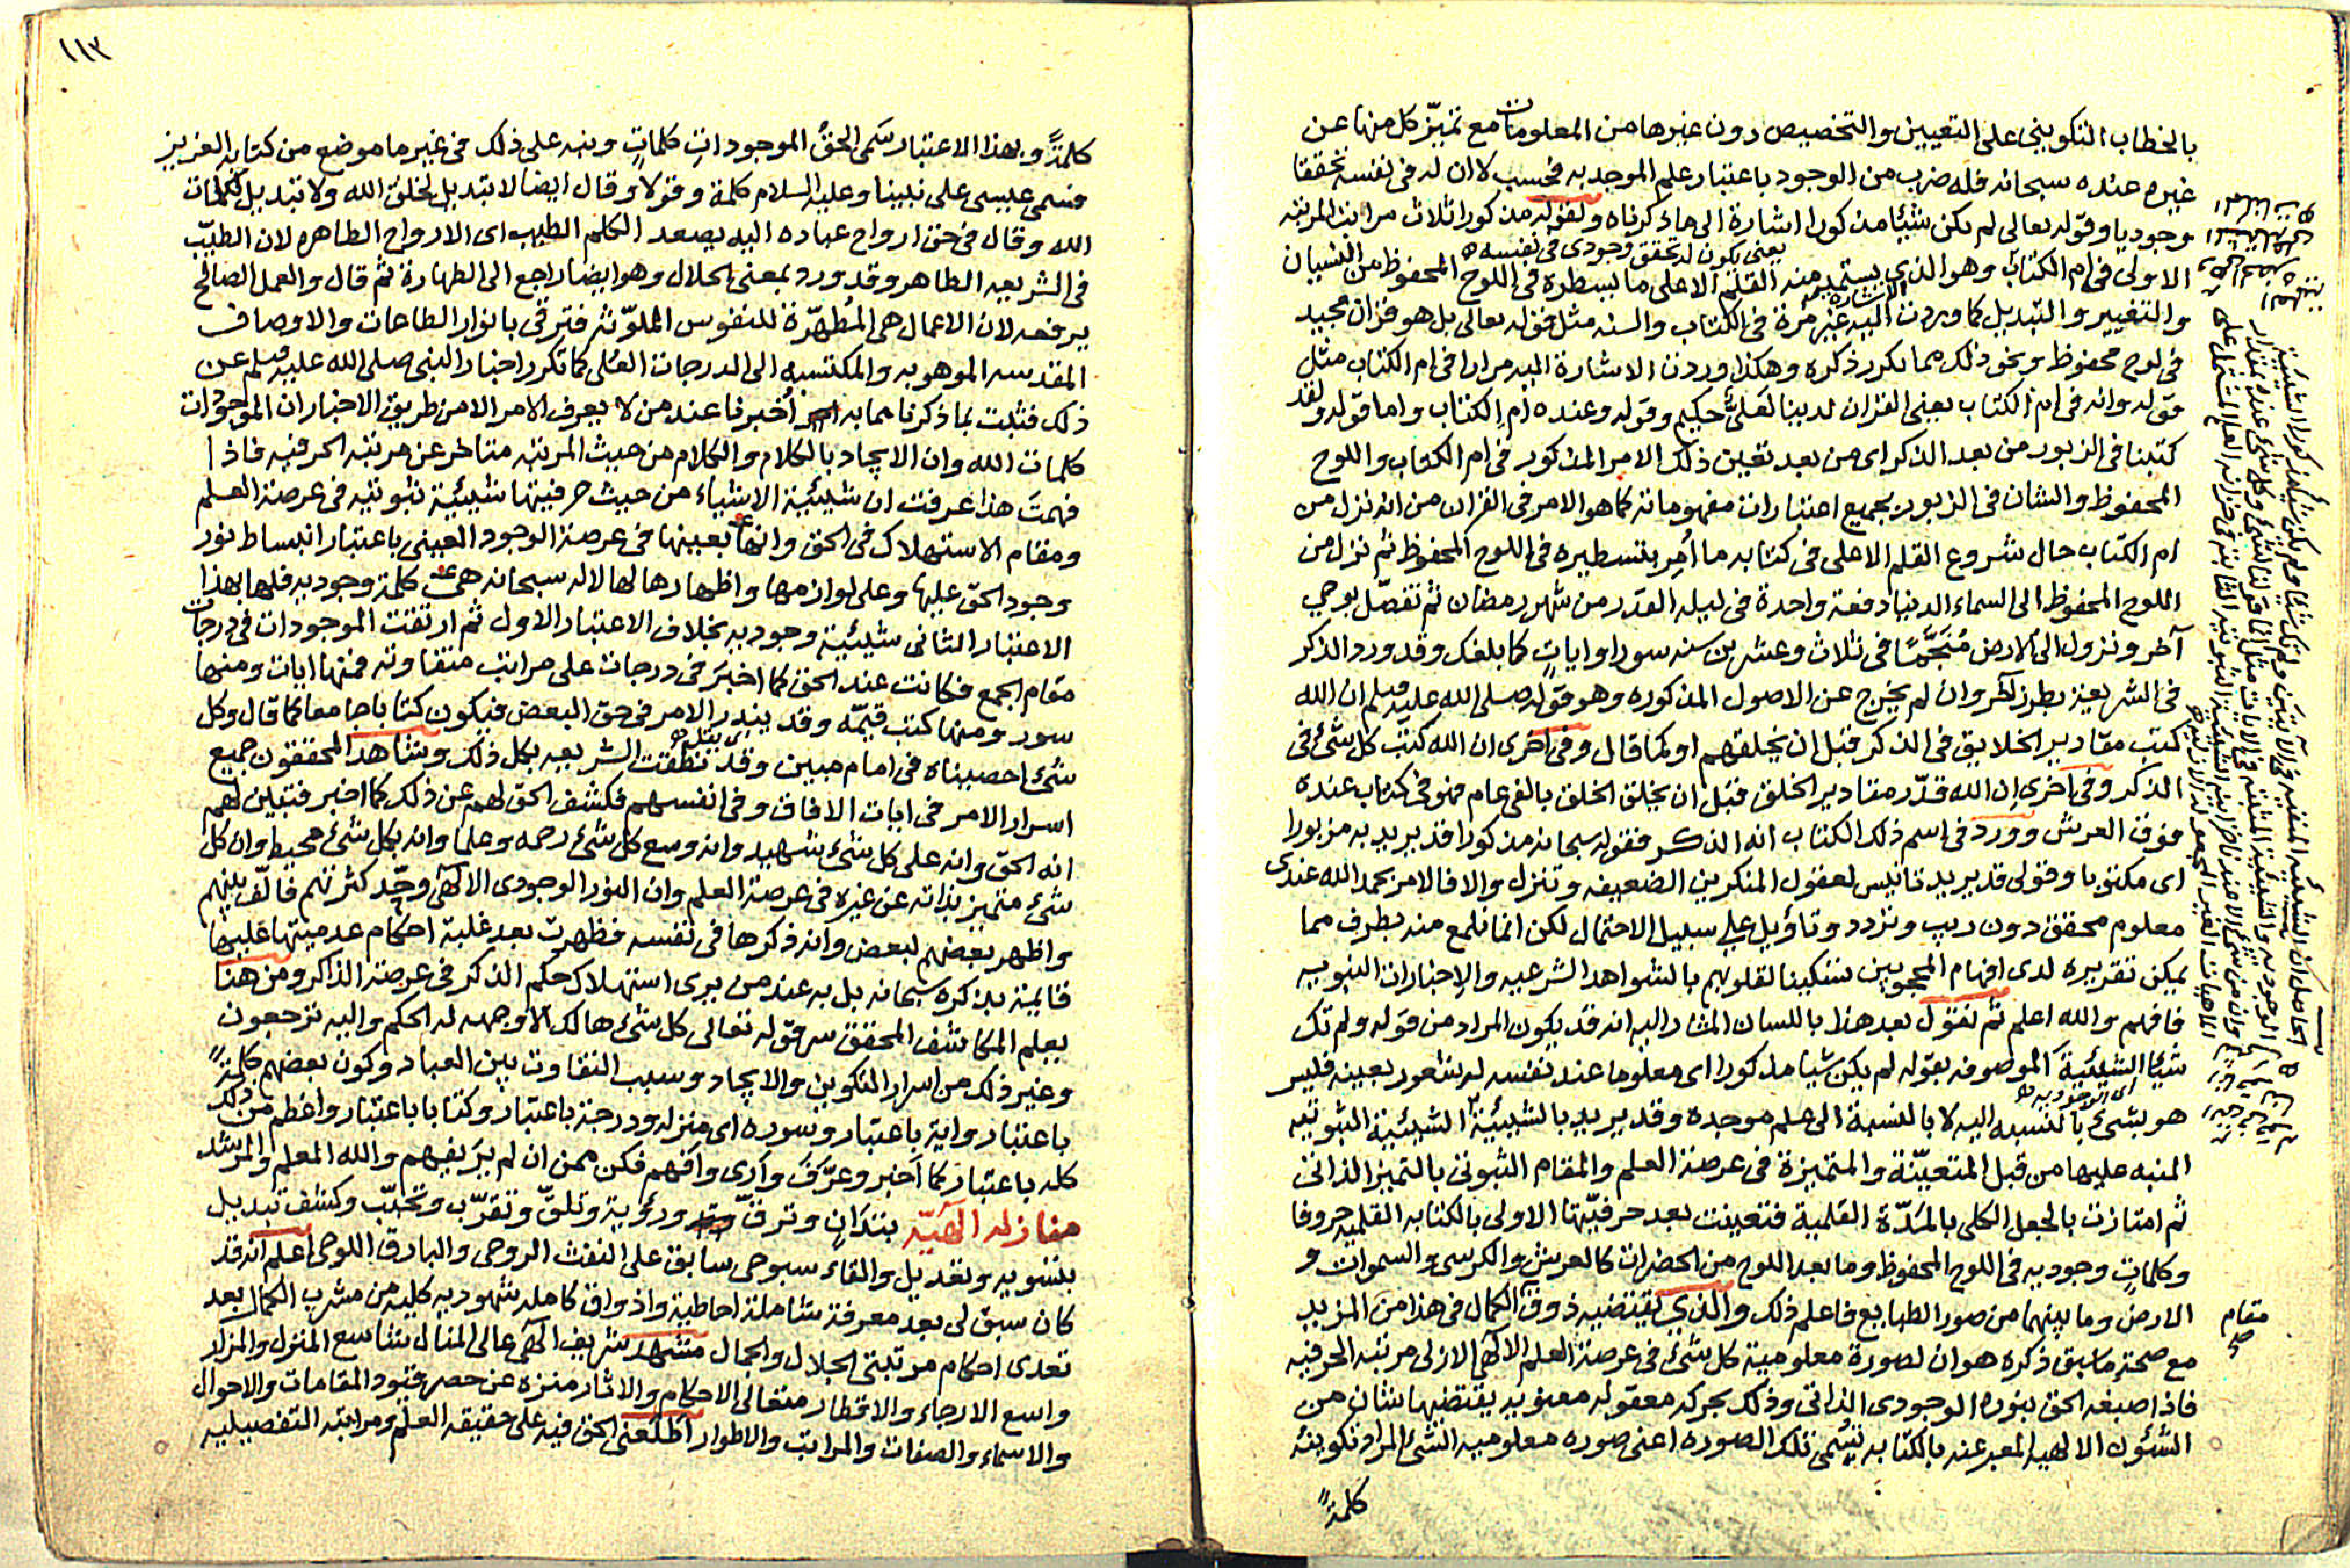 بالخطاب التكويني على التعيين والتخصيص دون غيرها من المعلومات مع تميّز كل منها عن
غيره عنده سبحانه فله ضرب من الوجود باعتبار علم الموجد به فحسب لا ان له في نفسه تحققا
وجوديا وقوله تعالى لم يكن شيئا مذكورا اشارة الى ما ذكرناه ولقوله مذكورا ثلاث مراتب المرتبة
يعني يكون له تحقق وجودي في نفسه
الاولى في ام الكتاب وهو الذي يستمد منه القلم الاعلى ما يسطره في اللوح المحفوظ من النسيان
والتغيير والتبديل كما وردت الاشارة اليه غير مرة في الكتاب والسنه مثل قوله تعالى بل هو قرآن مجيد
في لوح محفوظ ونحو ذلك مما تكرر ذكره وهكذا وردت الاشارة اليه مرارا في ام الكتاب مثل
قوله وانه في ام الكتاب يعني القران لدينا لعليّ حكيم وقوله وعنده ام الكتاب واما قوله ولقد
كتبنا في الزبور من بعد الذكر اى من بعد تعين ذلك الامر المذكور في ام الكتاب واللوح
المحفوظ والشان في الزبور بجميع اعتبارات مفهوماته كما هو الامر في القران من انه نزل من
ام الكتاب حال شروع القلم الاعلى في كتابه ما أمر بتسطيره في اللوح المحفوظ ثم نزل من
اللوح المحفوظ الى السماء الدنيا دفعة واحدة في ليله القدر من شهر رمضان ثم تفصّل بوحي
آخر ونزول الى الارض مُنَجَّمًا في ثلاث وعشرين سنه سورا وايات كما بلغك وقد ورد الذكر
في الشريعة بطرز آخر وان لم يخرج عن الاصول المذكوره وهو قوله صلى الله عليه وسلم ان الله
كتب مقادير الخلايق في الذكر قبل ان يخلقهم او كما قال وفي اخرى ان الله كتب كل شئ في
الذكر وفي اخرى ان الله قدّر مقادير الخلق قبل ان يخلق الخلق بالفي عام فهو في كتاب عنده
فوق العرش وورد في اسم ذلك الكتاب انه الذكر فقوله سبحانه مذكورا قد يريد به مزبورا
اى مكتوبا وقولى قد يريد تانيس لعقول المنكرين الضعيفه وتنزل والا فالامر بحمد الله عندى
معلوم محقق دون ريب وتردد وتاويل على سبيل الاحتمال لكن انما نلمع منه بطرف مما
يمكن تقريره لدى افهام المحجوبين تسكينا لقلوبهم بالشواهد الشرعيه والاخبارات النبويه
فافهم والله اعلم ثم نقول بعد هذا باللسان المشار اليه انه قد يكون المراد من قوله ولم تك
شيئا الشيئية الموصوفه بقوله لم يكن شيئا مذكورا اى معلوما عند نفسه له شعور بعينه فليس
اى الوجوديه
هو بشئ بالنسبه اليه لا بالنسبة الى علم موجده وقد يريد بالشيئية الشيئية الثبوتيه
المنبه عليها من قبل المتعيّنة والمتميزة في عرصة العلم والمقام الثبوتي بالتميز الذاتي
ثم امتازت بالجعل الكلى بالمَدّة القلمية فتعينت بعد حرفيّتها الاولى بالكتابه القلميه حروفا
وكلمات وجوديه في اللوح المحفوظ وما بعد اللوح من الحضرات كالعرش والكرسي والسموات و
الارض وما بينهما من صور الطبايع فاعلم ذلك والذي يقتضيه ذوق الكمال في هذا من المزيد
مقام
صح
مع صحة ما سبق ذكره هو ان لصورة معلومية كل شئ في عرصة العلم الالهي الازلى مرتبه الحرفيه
فاذا صبغه الحق بنوره الوجودى الذاتي وذلك بحركه معقوله معنويه يقتضيها شان من
الشئون الالهيه المعبر عنه بالكتابه تسمى تلك الصوره اعنى صوره معلوميه الشئ المراد تكوينه
كلمةً
١١٣
كلمةً وبهذا الاعتبار سَمى الحقُ الموجوداتِ كلماتٍ ونبه على ذلك في غير ما موضع من كتابه العزيز
فسمى عيسى على نبينا وعليه السلام كلمة وقولا وقال ايضا لا تبديل لخلق الله ولا تبديل لكلمات
الله وقال في حق ارواح عباده اليه يصعد الكلم الطيب اى الارواح الطاهره لان الطيّب
في الشريعه الطاهر وقد ورد بمعنى الحلال وهو ايضا راجع الى الطهارة ثم قال والعمل الصالح
يرفعه لان الاعمال هى المُطهّرة للنفوس الملوّثه فترقى بانوار الطاعات والاوصاف
المقدسه الموهوبه والمكتسبه الى الدرجات العُلى كما تكرر اخبار النبى صلى الله عليه وسلم عن
ذلك فثبت بما ذكرنا مما به أخبرنا عند من لا يعرف الامر الا من طريق الاخبار ان الموجودات
كلمات الله وان الايجاد بالكلام والكلام من حيث المرتبه متاخر عن مرتبه الحرفيه فاذا
فهمتَ هذا عرفت ان شيئية الاشياء من حيث حرفيتها شيئية ثبوتيه في عرصة العلم
ومقام الاستهلاك في الحق وانها بعينها في عرصة الوجود العينى باعتبار انبساط نور
وجود الحق عليها وعلى لوازمها واظهارها لها لا له سبحانه هى كلمة وجوديه فلها بهذا
الاعتبار الثانى شيئية وجوديه بخلاف الاعتبار الاول ثم ارتقت الموجودات في درجات
مقام الجمع فكانت عند الحق كما اخبرَ في درجات على مراتب متفاوته فمنها ايات ومنها
سور ومنها كتب قيّمه وقد يندر الامر في حق البعض فيكون كتابا جامعا كما قال وكل
شئ احصيناه في امام مبين وقد نطقت الشريعه بكل ذلك وشاهد المحققون جميع
اسرار الامر في ايات الافاق وفي انفسهم فكشف الحق لهم عن ذلك كما اخبر فتبين لهم
انه الحق وانه على كل شئ شهيد وانه وسع كل شئ رحمه وعلما وانه بكل شئ محيط وان كل
شئ متميز بذاته عن غيره في عرصة العلم وان النور الوجودى الالهى وحّد كثرتهم فالّف بينهم
واظهر بعضهم لبعض وانه ذكرها في نفسه فظهرت بعد غلبة احكام عدميتها عليها
قايمة بذكره سبحانه بل به عند من يرى استهلاك حكم الذكر في عرصة الذاكر ومن هنا
يعلم المكاشف المحقق سر قوله تعالى كل شئ هالك الا وجهه له الحكم واليه ترجعون
وغير ذلك من اسرار التكوين والايجاد وسبب التفاوت بين العباد وكون بعضهم كلمةً
باعتبار واية باعتبار وسوره اى منزله ودرجة باعتبار وكتابا باعتبار واعظم من ذلك
كله باعتبار كما اَخبر وعرّف وأرى وافهم فكن ممن ان لم يرَ يفهم والله المعلم والمرشد
منازله الهيّه بتدَانٍ وترقّ ورؤية وتلقّ وتقرّب وتحبّب وكشف تبديل
بتسويه وتعديل والقاء سبوحى سابق على النفث الروحى والبارق اللوحى اعلم انه قد
كان سبق لى بعد معرفة شاملة احاطية واذواق كامله شهوديه كليه من مشرب الكمال بعد
تعدى احكام مرتبتى الجلال والجمال مشهد شريف الهى عالى المنال شاسع المنزل والمزار
واسع الارجاء والاقطار متعالى الاحكام والاثار منزه عن حصر قيود المقامات والاحوال
والاسماء والصفات والمراتب والاطوار اطلعنى الحق فيه على حقيقه العلم ومراتبه التفصيليه